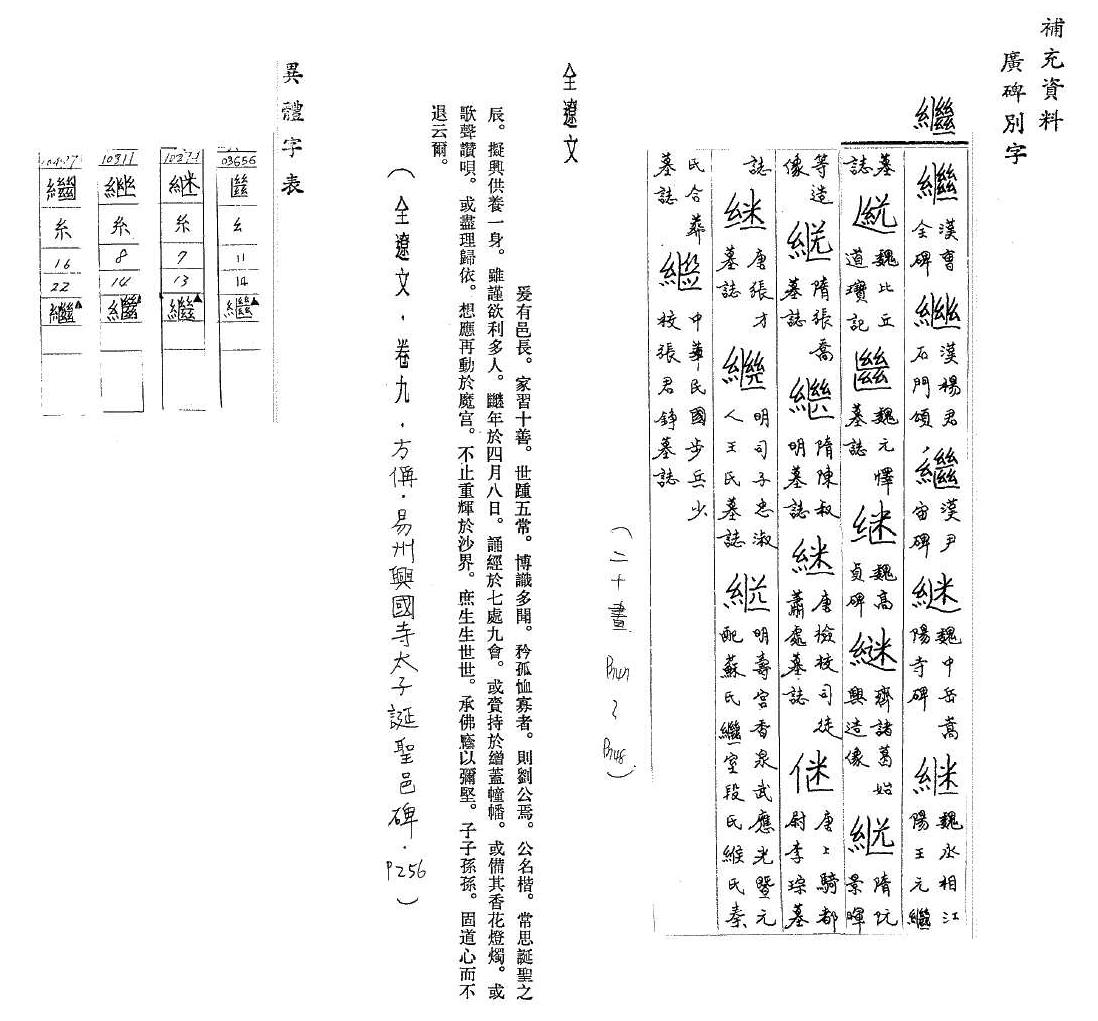 補充資料
廣碑別字
繼
繼 漢曹全碑 漢楊君石門頌 漢尹宙碑 継 魏中岳嵩陽寺碑 継 魏丞相江陽王元繼
墓誌 魏比丘道瓊記 魏元懌墓誌 継 魏高貞碑 齊諸葛始興造像 隋阮景暉
等造像 隋張喬墓誌 隋陳叔明墓誌 継 唐檢校司徒蕭處墓誌 唐上騎都尉李琮墓
誌 継 唐張才墓誌 明司子忠淑人王氏墓誌 明壽官香泉武應光暨元配蘇氏繼室段氏緱氏秦
氏合葬墓誌 中華民國步兵少校張君錚墓誌
(二十畫 P.747~P.748)
全遼文
爰有邑長。家習十善。世踵五常。博識多聞。矜孤恤寡者。則劉公焉。公名楷。常思誕聖之
辰。擬興供養一身。雖謹欲利多人。年於四月八日。誦經於七處九會。或賫持於繒蓋幢幡。或備其香花燈燭。或
歌聲讚唄。或盡理歸依。想應再動於魔宮。不止重輝於沙界。庶生生世世。承佛廕以彌堅。子子孫孫。固道心而不
退云爾。
(全遼文.卷九.方偁.易州興國寺太子誕聖邑碑.P256)
異體字表
03656
幺
11
14
繼
10271
継
糸
7
13
繼
10311
糸
8
14
繼
10437
糸
16
22
繼